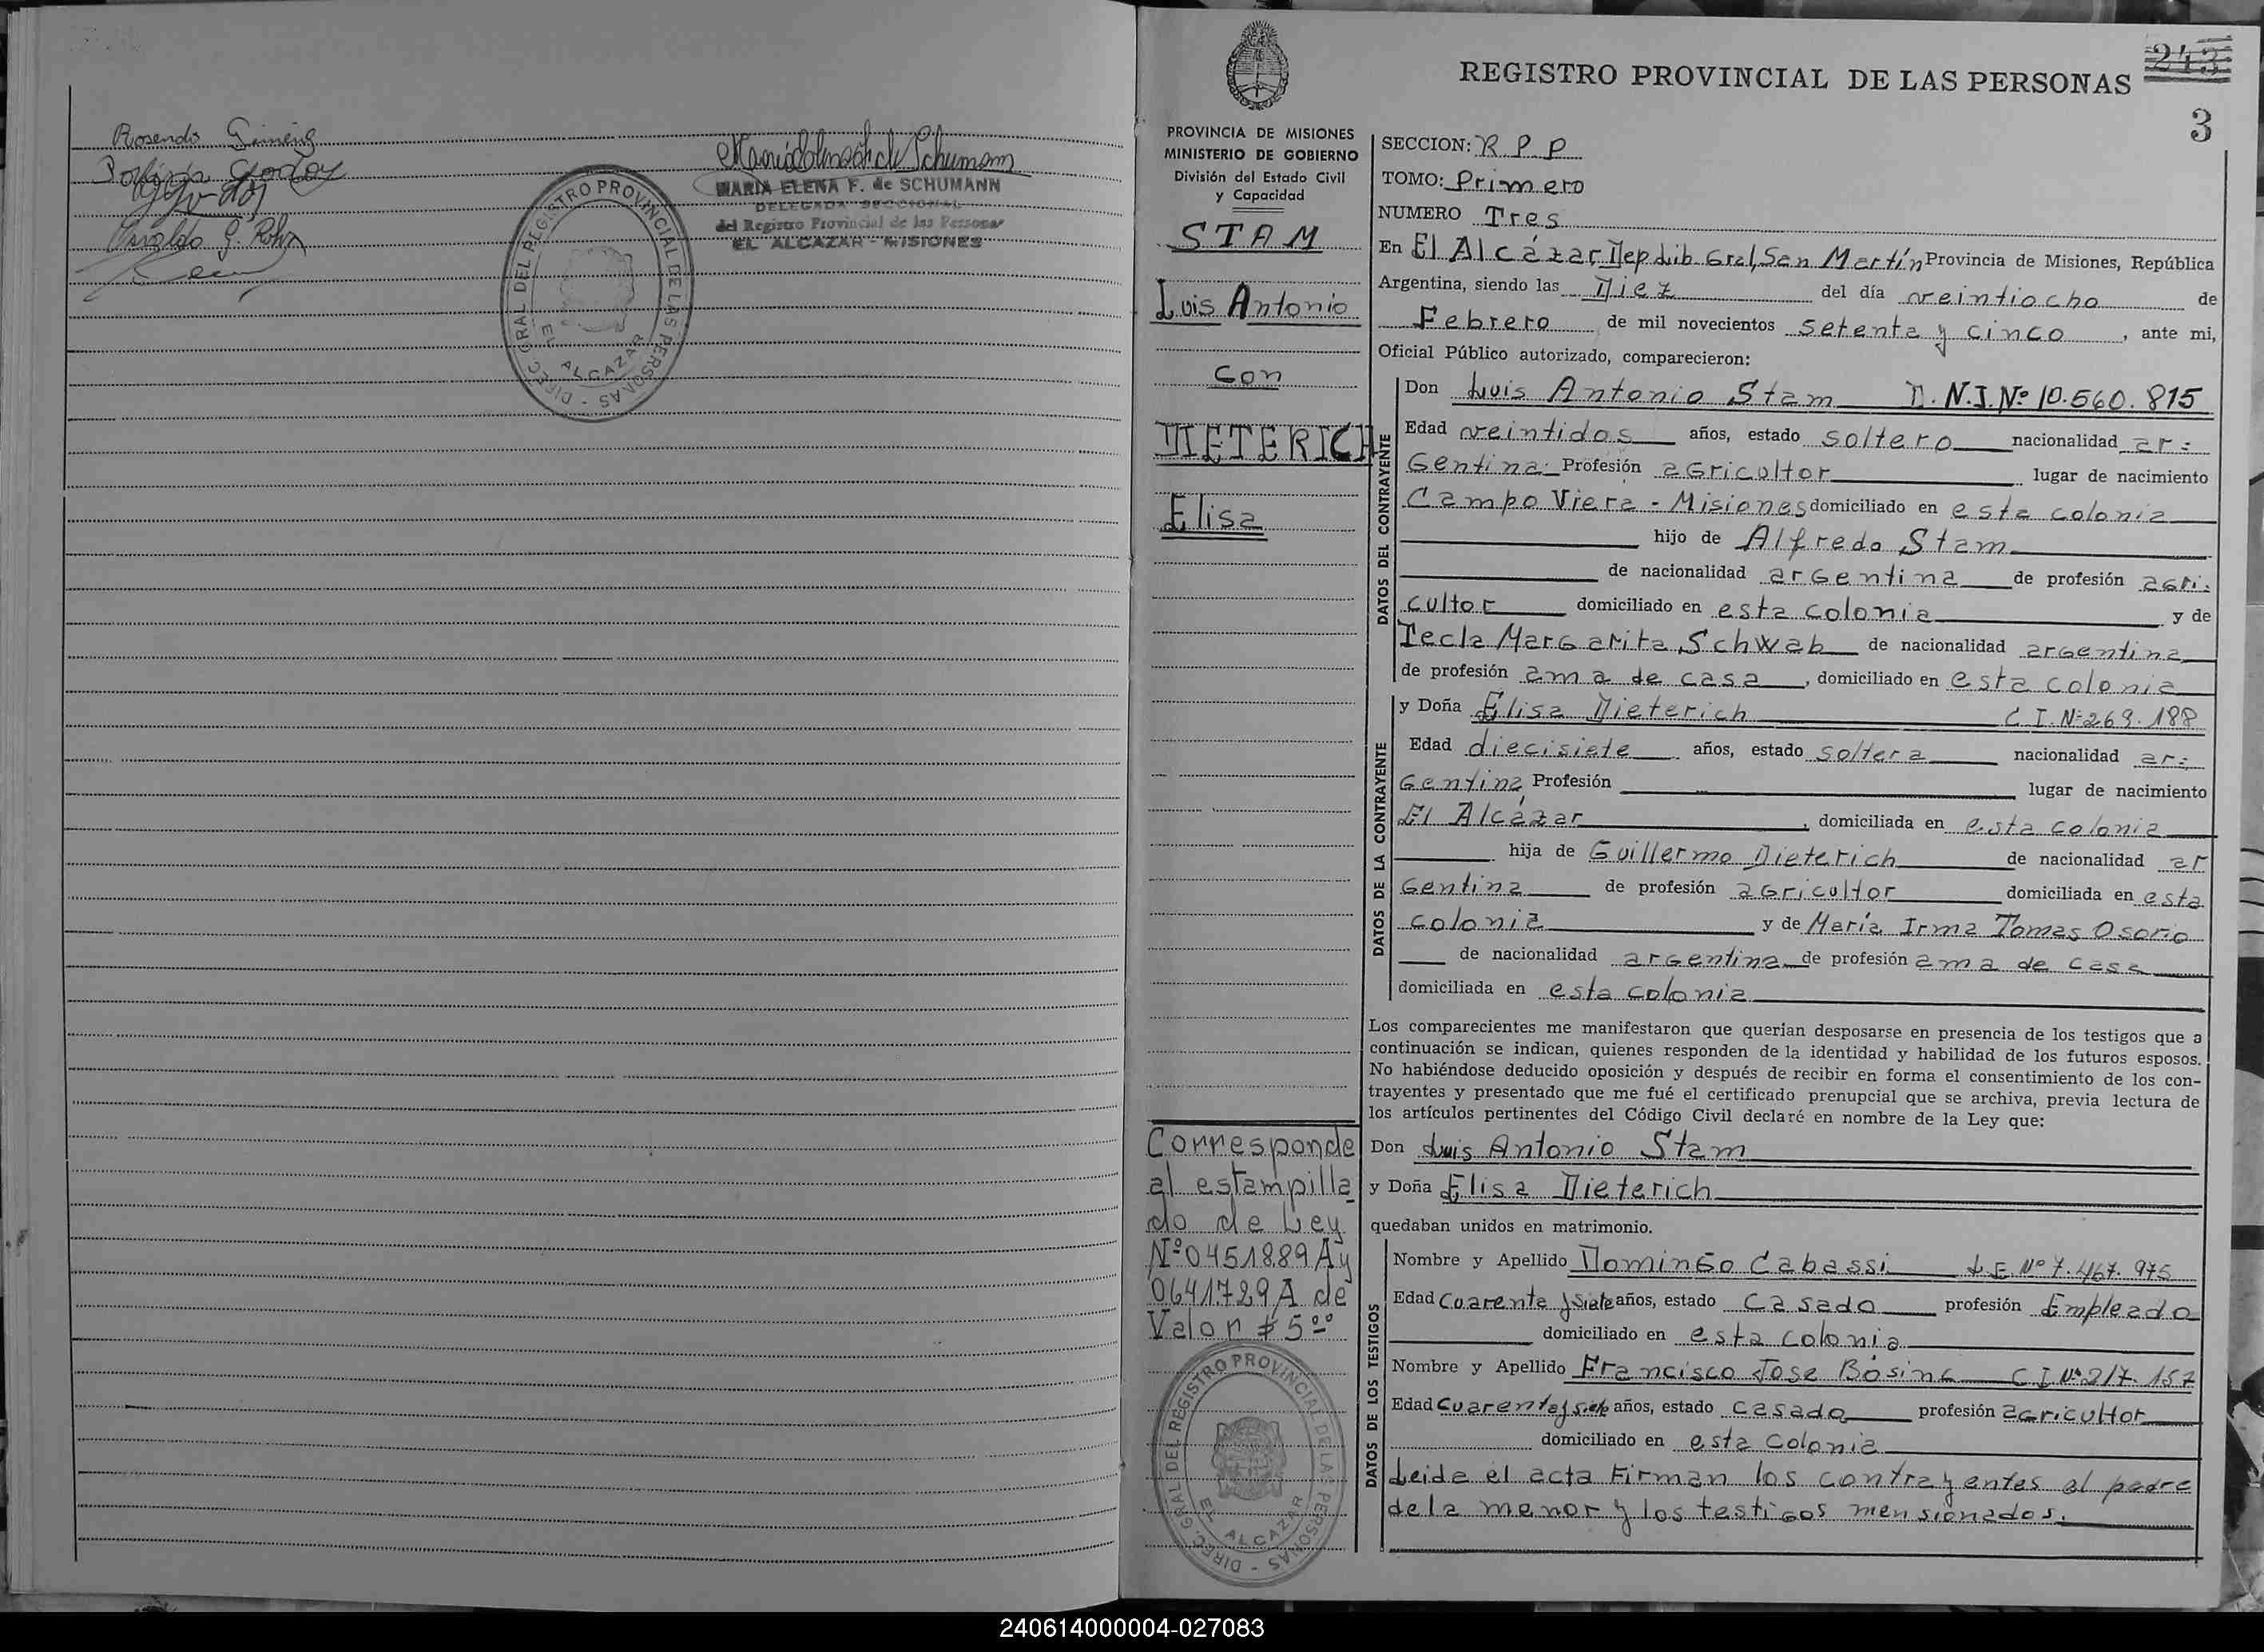 Rosendo Giménez
Porfiria Godoy
Osvaldo G. Rohr
MARIA ELENA F. de SCHUMANN
DELEGADA SECCIONAL
del Registro Provincial de las Personas
EL ALCAZAR - MISIONES
DIREC. GRAL DEL REGISTRO PROVINCIAL DE LAS PERSONAS -
EL ALCAZAR
243
REGISTRO PROVINCIAL DE LAS PERSONAS
3
PROVINCIA DE MISIONES
MINISTERIO DE GOBIERNO
División del Estado Civil
y Capacidad
STAM
Luis Antonio
con
DIETERICH
Elisa
Corresponde
al estampilla
do de Ley
Nº 0451889 A y
0641729 A de
Valor $ 5ºº
DIREC. GRAL DEL REGISTRO PROVINCIAL DE LA PERSONAS -
EL ALCAZAR
SECCION: R P P
TOMO: Primero
NUMERO Tres
En El Alcázar, Dep. Lib. Gral, San Martín Provincia de Misiones, República
Argentina, siendo las Diez del día veintiocho de
Febrero de mil novecientos setenta y cinco, ante mi,
Oficial Público autorizado, comparecieron:
DATOS DEL CONTRAYENTE
Don Luis Antonio Stam D.N.I. Nº 10.560.815
Edad veintidos años, estado soltero nacionalidad ar=
Gentina Profesión aGricultor lugar de nacimiento
Campo Viera - Misiones domiciliado en esta colonia
hijo de Alfredo Stam
de nacionalidad arGentina de profesión aGri=
cultor domiciliado en esta colonia y de
Tecla MarGarita Schwab de nacionalidad arGentina
de profesión ama de casa, domiciliado en esta colonia
DATOS DE LA CONTRAYENTE
y Doña Elisa Dieterich C.I. Nº 269.188
Edad diecisiete años, estado soltera nacionalidad ar=
Gentina Profesión lugar de nacimiento
El Alcázar, domiciliada en esta colonia
hija de Guillermo Dieterich de nacionalidad ar
Gentina de profesión aGricultor domiciliada en esta
colonia y de María Irma Tomas Osorio
de nacionalidad arGentina de profesión ama de casa
domiciliada en esta colonia
Los comparecientes me manifestaron que querían desposarse en presencia de los testigos que a
continuación se indican, quienes responden de la identidad y habilidad de los futuros esposos.
No habiéndose deducido oposición y después de recibir en forma el consentimiento de los con-
trayentes y presentado que me fué el certificado prenupcial que se archiva, previa lectura de
los artículos pertinentes del Código Civil declaré en nombre de la Ley que:
Don Luis Antonio Stam
y Doña Elisa Dieterich
quedaban unidos en matrimonio.
DATOS DE LOS TESTIGOS
Nombre y Apellido Domingo Cabassi L.E. Nº 7.467.975
Edad Cuarenta y siete años, estado Casado profesión Empleado
domiciliado en esta colonia
Nombre y Apellido Francisco Jose Bósing C I Nº 217.157
Edad Cuarenta y siete años, estado casado profesión aGricultor
domiciliado en esta colonia
Leida el acta Firman los contrayentes el padre
de la menor y los testiGos mensionados.
240614000004-027083